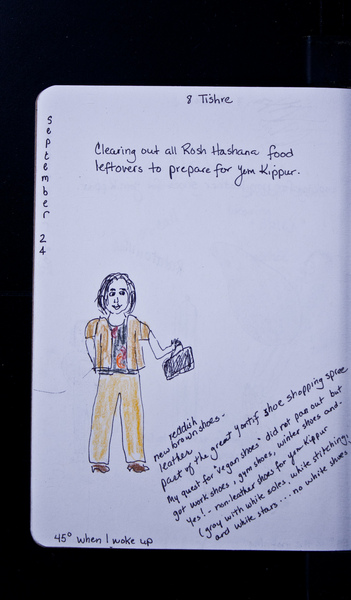 8 Tishre
September 24
Clearing out all Rosh Hashana food
leftovers to prepare for Yom Kippur.
reddish
new brown shoes -
leather
part of the great yontif shoe shopping spree
My quest for "vegan shoes" did not pan out but
got work shoes, gym shoes, winter shoes and -
Yes! - non-leather shoes for Yom Kippur
(gray with white soles, white stitching,
and white stars.... no white shoes
45° when I woke up